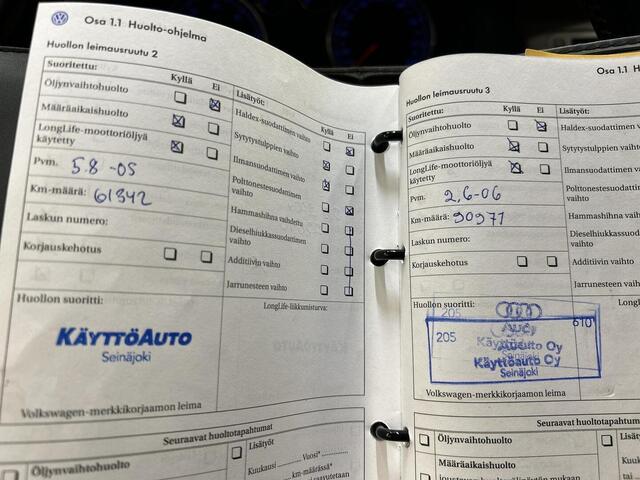 Osa 1.1 Huolto-ohjelma
Huollon leimausruutu 2
Suoritettu:
Kyllä
Ei
Öljynvaihtohuolto
Määräaikaishuolto
LongLife-moottoriöljyä
käytetty
Pvm. 5.8 -05
Km-määrä: 61342
Laskun numero:
Korjauskehotus
Lisätyöt:
Kyllä
Ei
Haldex-suodattimen vaihto
Sytytystulppien vaihto
Ilmansuodattimen vaihto
Polttonestesuodattimen
vaihto
Hammashihna vaihdettu
Dieselhiukkassuodattimen
vaihto
Additiivin vaihto
Jarrunesteen vaihto
Huollon suoritti:
LongLife-liikkumisturva:
KÄYTTÖAUTO
Seinäjoki
Volkswagen-merkkikorjaamon leima
Seuraavat huoltotapahtumat
Öljynvaihtohuolto
Lisätyöt
Kuukausi
Vuosi*
km-määrässä*
Osa 1.1
Huollon leimausruutu 3
Suoritettu:
Kyllä
Ei
Öljynvaihtohuolto
Määräaikaishuolto
LongLife-moottoriöljyä
käytetty
Pvm. 2,6-06
Km-määrä: 90971
Laskun numero:
Korjauskehotus
Lisätyöt:
Haldex-suodattimen
Sytytystulppien vaihto
Ilmansuodattimen
Polttonestesuodattimen
vaihto
Hammashihna
Dieselhiukkassuodattimen
vaihto
Additiivin vaihto
Jarrunesteen vaihto
Huollon suoritti:
LongLife
205
610
205
Käyttöauto Oy
Seinäjoki
Volkswagen-merkkikorjaamon leima
Seuraavat huoltotapahtumat
Öljynvaihtohuolto
Määräaikaishuolto
Lisätyöt
Kuukausi